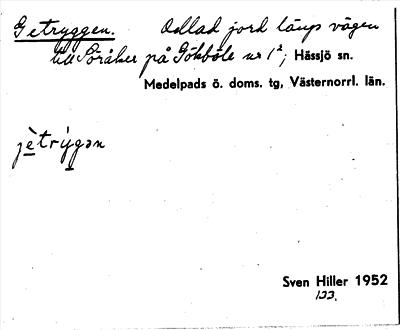 Getryggen. Odlad jord längs vägen
till Söråker på Gökböle nr 1²; Hässjö sn.
Medelpads ö. doms. tg, Västernorrl. län.
jètrýgən
Sven Hiller 1952
133.